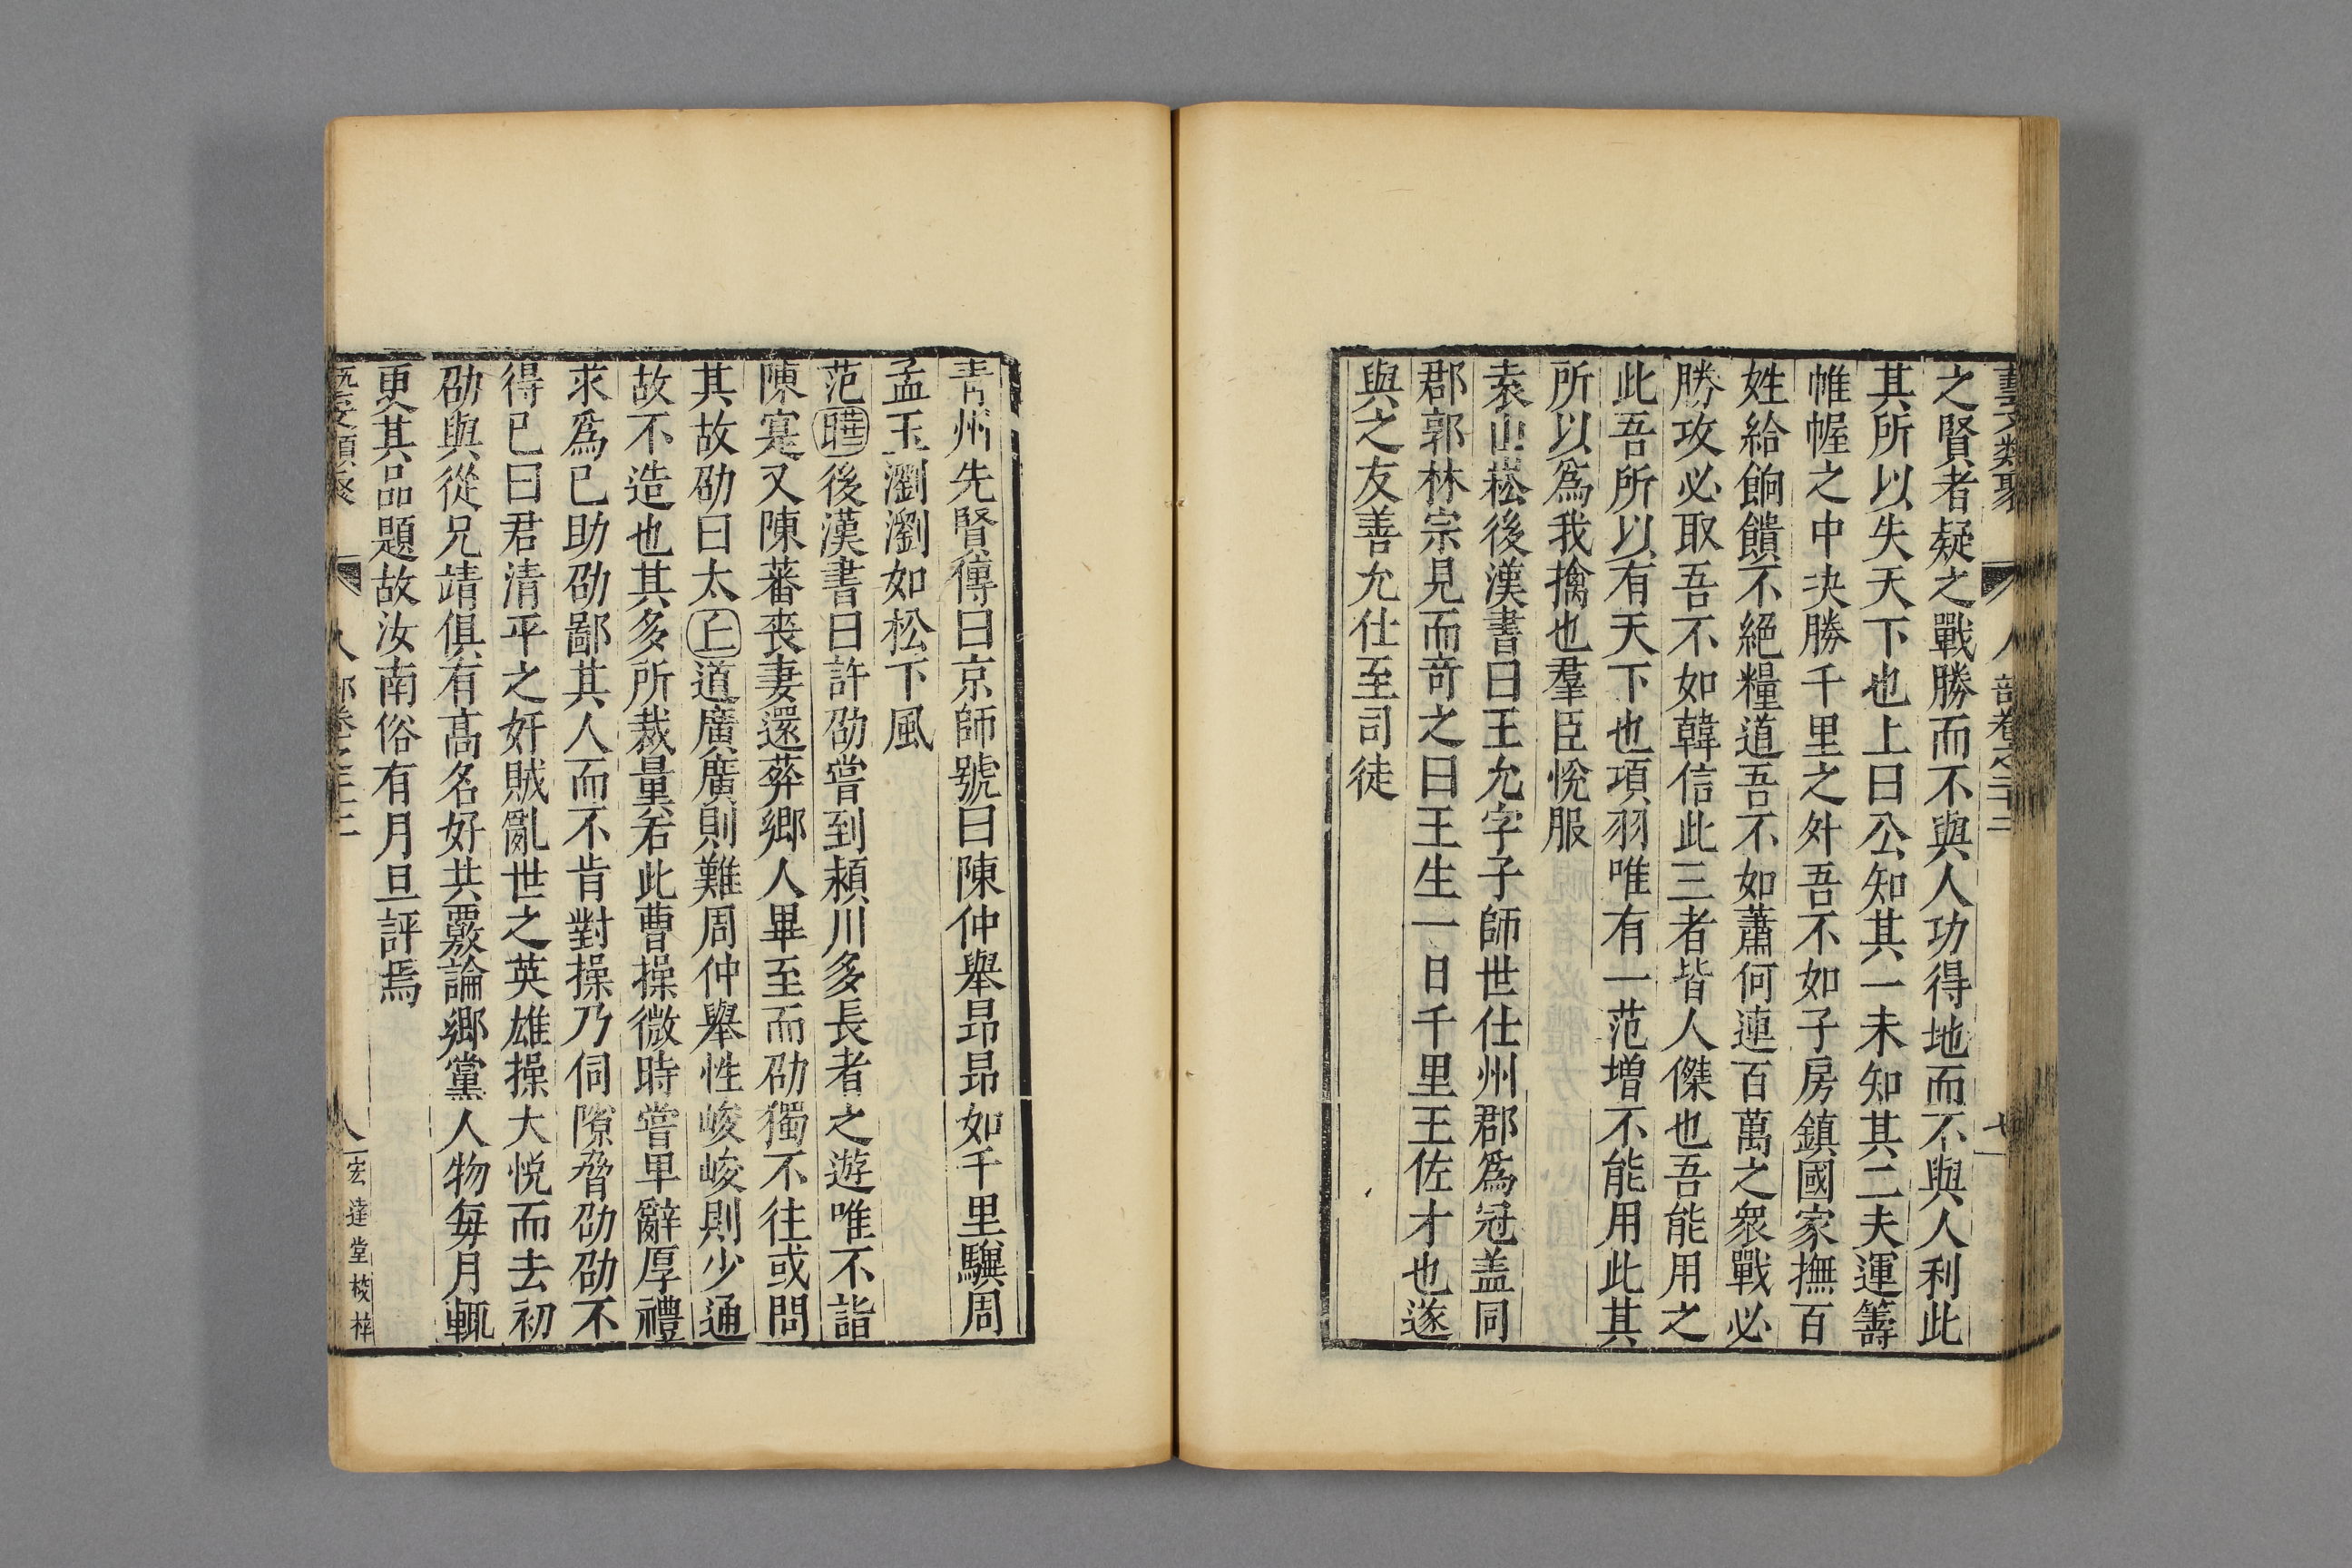 藝文類聚 人部卷之二十二 七
之賢者疑之戰勝而不與人功得地而不與人利此
其所以失天下也上曰公知其一未知其二夫運籌
帷幄之中决勝千里之外吾不如子房鎮國家撫百
姓給餉饋不絕糧道吾不如蕭何連百萬之衆戰必
勝攻必取吾不如韓信此三者皆人傑也吾能用之
此吾所以有天下也項羽唯有一范增不能用此其
所以爲我擒也羣臣悅服
袁山崧後漢書曰王允字子師世仕州郡爲冠盖同
郡郭林宗見而竒之曰王生一日千里王佐才也遂
與之友善允仕至司徒
青州先賢傳曰京師號曰陳仲舉昂昂如千里驥周
孟玉瀏瀏如松下風
范曄後漢書曰許劭嘗到潁川多長者之遊唯不詣
陳寔又陳蕃喪妻還葬鄉人畢至而劭獨不往或問
其故劭曰太丘道廣廣則難周仲舉性峻峻則少通
故不造也其多所裁量若此曹操微時嘗卑辭厚禮
求爲已助劭鄙其人而不肯對操乃伺隙脅劭劭不
得已曰君清平之奸賊亂世之英雄操大悅而去初
劭與從兄靖俱有高名好共覈論鄉黨人物每月輒
更其品題故汝南俗有月旦評焉
人部卷之二十二 八 宏達堂校梓